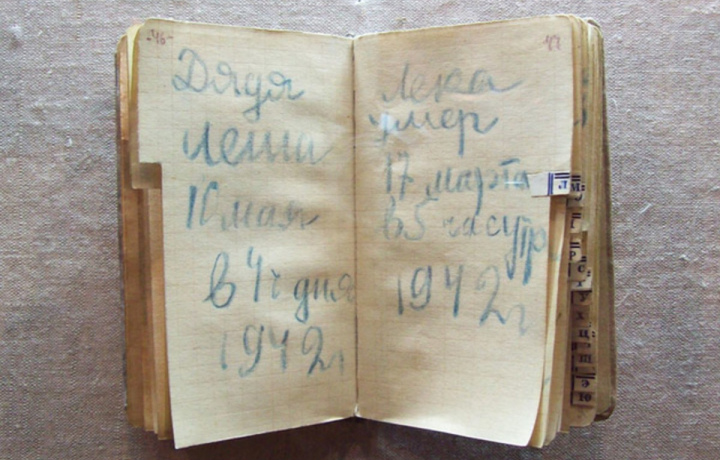 -46-
Дядя
Леша
10 мая
в 4 ч дня
1942 г
47
Лека
умер
17 марта
в 5 час утр
1942 г
Л М
Р
С
У
Х
Ц
Э
Ю